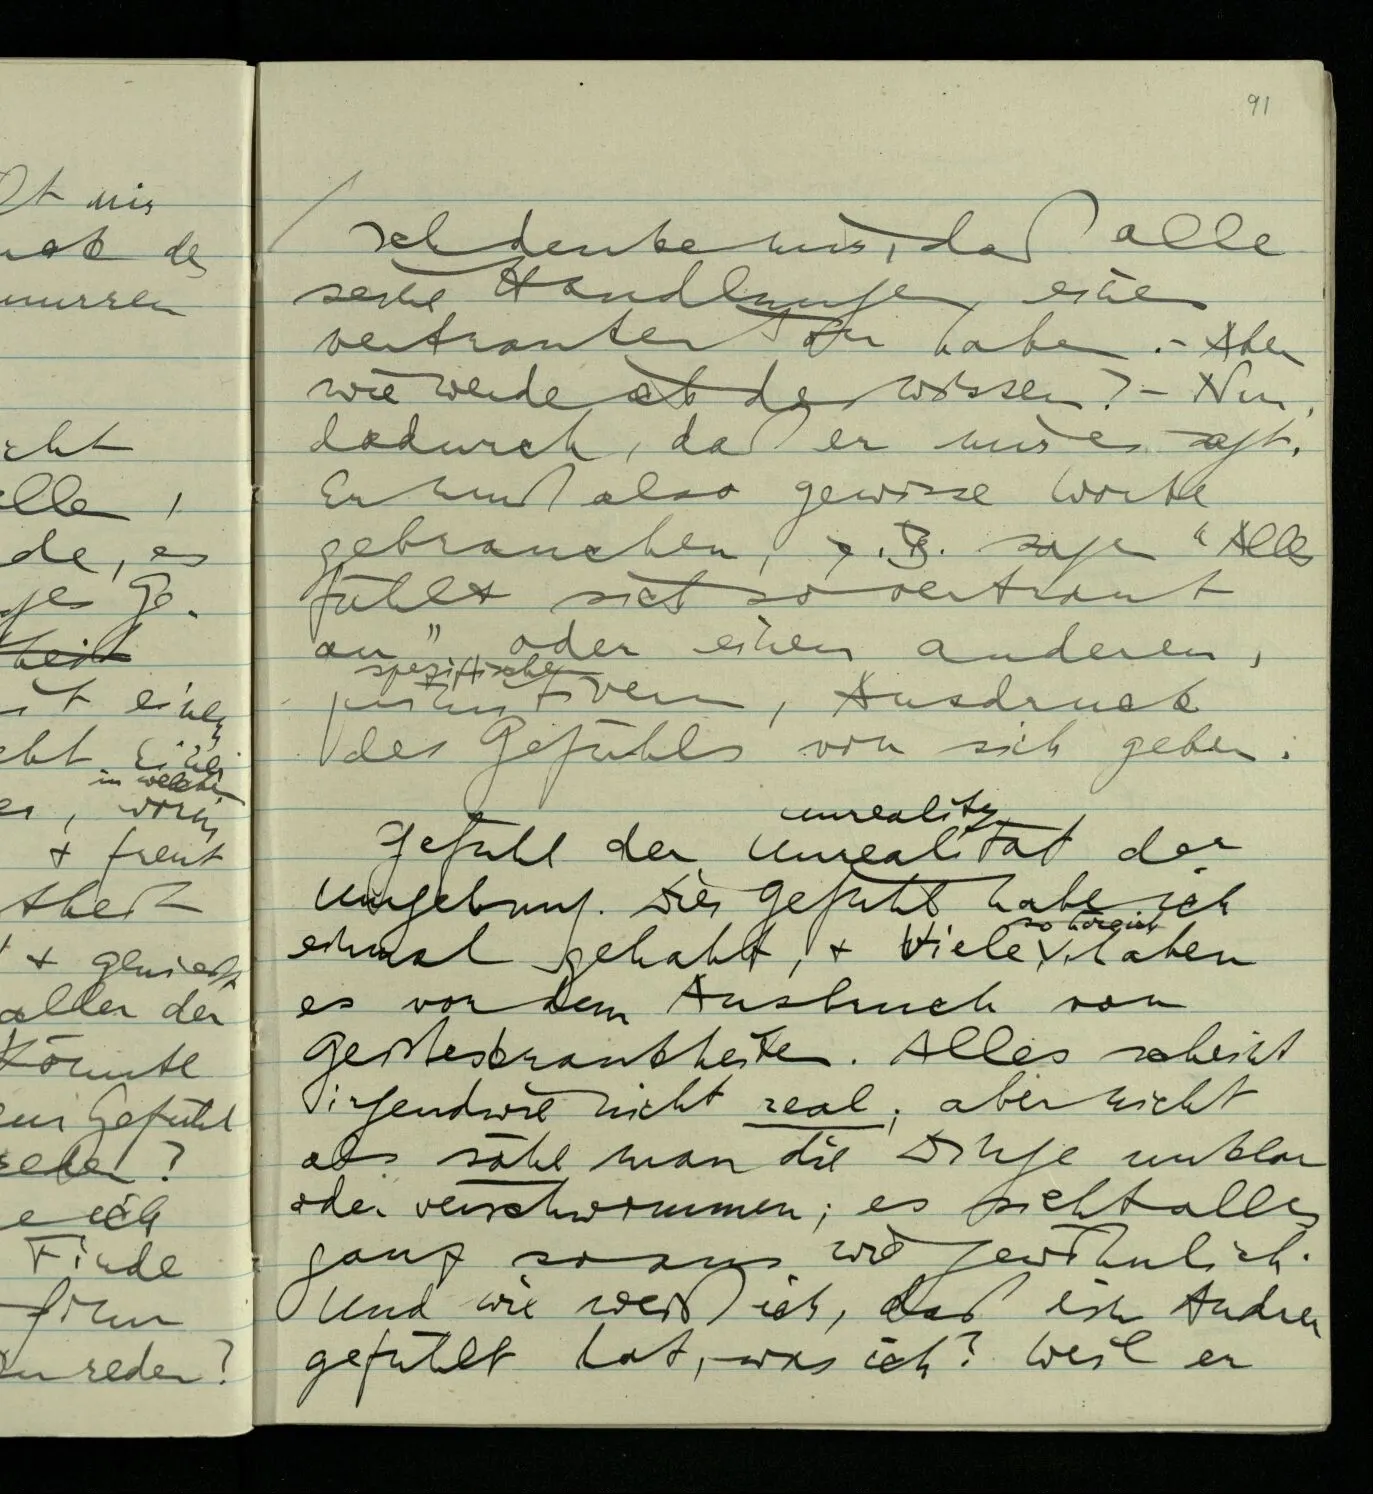 lt mir
der
murren
cht
elle,
de, es
ges Ge-
heit
it einer
cht. Eine
in welchem
er, worin
+ freut
theit
+ genießt
aller der
könnte
ein Gefühl
reden?
e ich
Finde
form
zu reden?
91
/ Ich denke mir, daß alle
seine Handlungen einen
vertrauten Ton haben. – Aber
wie werde ich das wissen? – Nun,
dadurch, daß er mir es sagt.
Er muß also gewisse Worte
gebrauchen, z.B. sagen "Alles
fühlt sich so vertraut
an" oder einen anderen,
spezifischen
primitiven, Ausdruck
des Gefühls von sich geben.
unreality
Gefühl der Unrealität der
Umgebung. Dies Gefühl habe ich
so höre ich
einmal gehabt, + Viele haben
es vor dem Ausbruch von
Geisteskrankheiten. Alles scheint
irgendwie nicht real; aber nicht
als sähe man die Dinge unklar
oder verschwommen; es sieht alles
ganz so aus wie gewöhnlich.
Und wie weiß ich, daß ein Andrer
gefühlt hat, was ich? Weil er